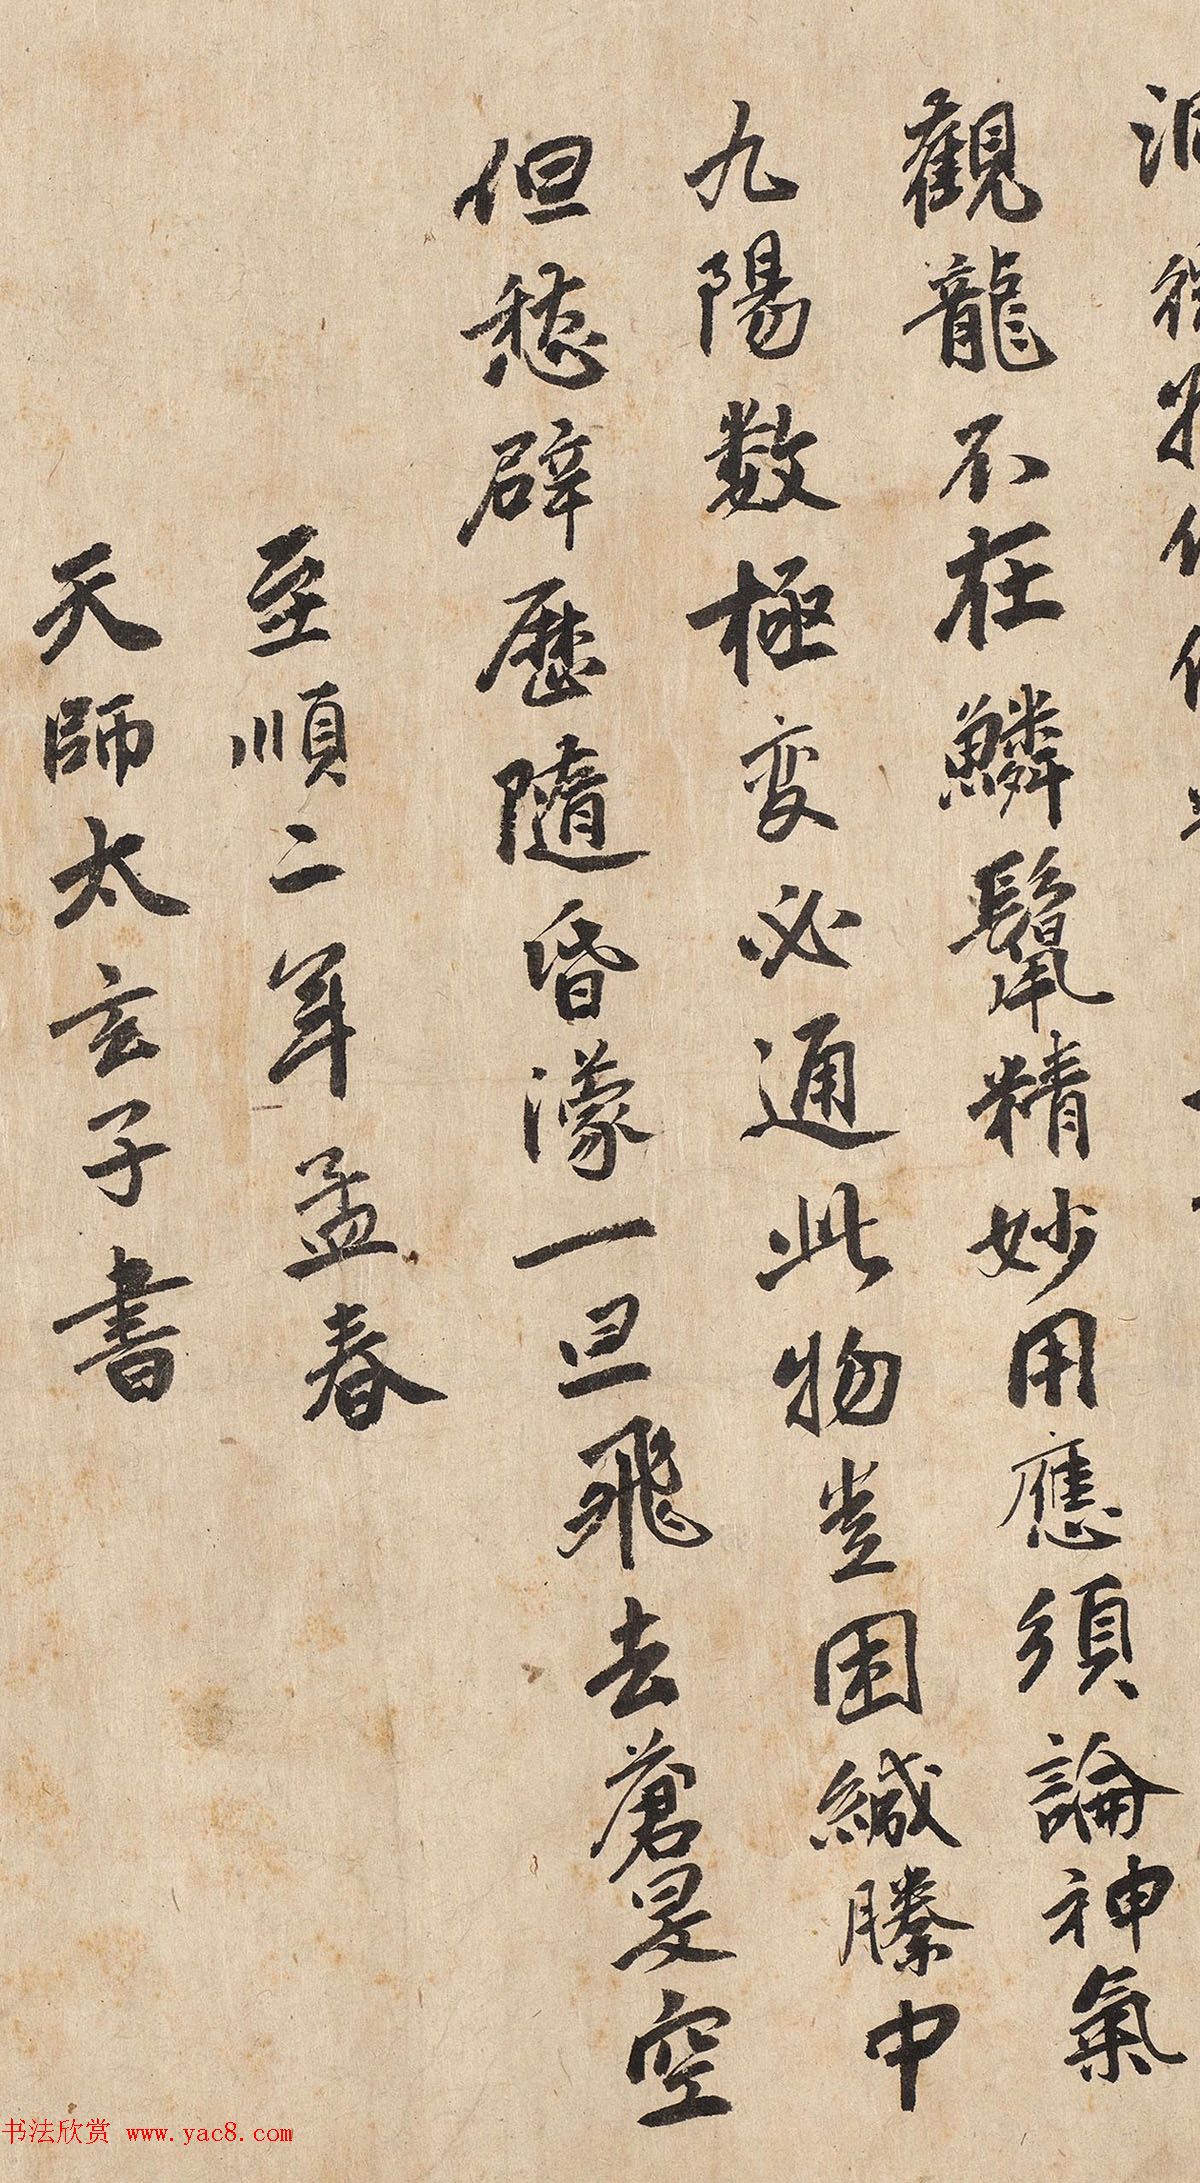 觀龍不在鱗鬣精妙用應須論神氣
九陽数極变必通此物豈困緘縢中
但愁辟歷隨昏濛一旦飛去蒼旻空
至順二年孟春
天師太玄子書
书法欣赏 www.yac8.com